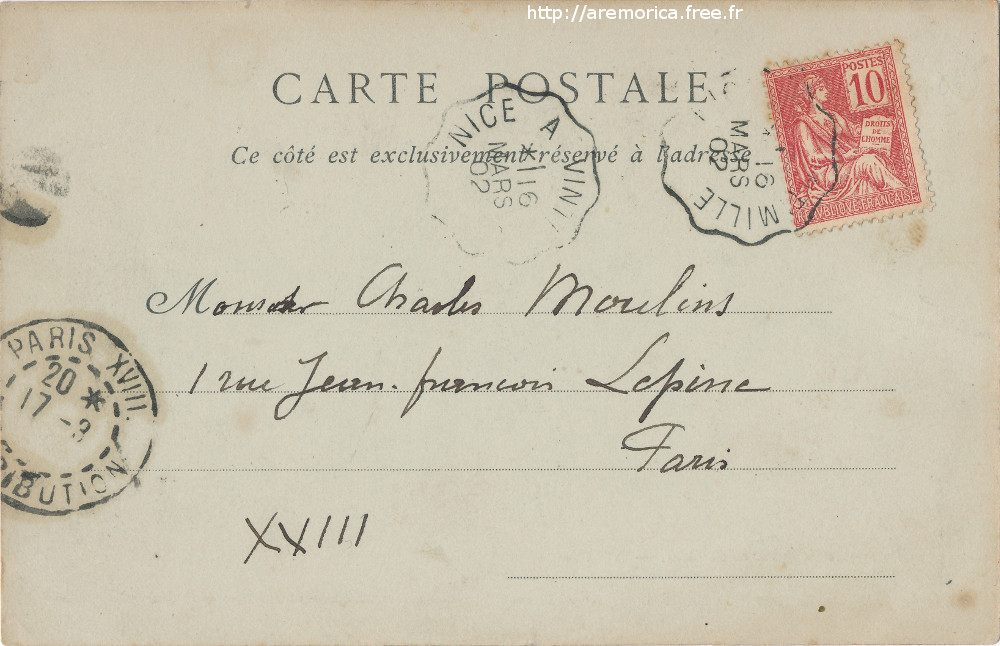 http://aremorica.free.fr
CARTE POSTALE
Ce côté est exclusivement réservé à l'adresse
NICE A VINTI
*1 16
MARS
02
16
MARS
02
MILLE
POSTES
10
DROITS
DE
L'HOMME
REPUBLIQUE FRANÇAISE
Monsieur Charles Moulins
1 rue Jean-françois Lepine
Paris
XXIII
PARIS XVIII.
20 *
17 -3
DISTRIBUTION